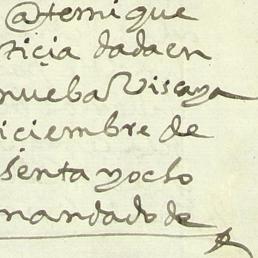 @temi que
tiçia dada en
nueba Viscaya
içiembre de
senta y ocho
mandado de